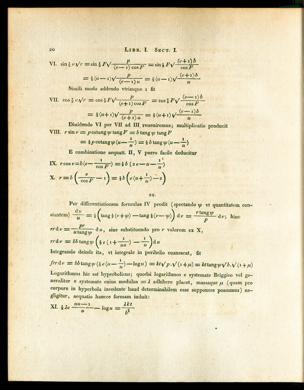 20 LIBR. I. SECT. I.
VI. sin ½ v √r = sin ½ F √(p / ((e−1) cos F)) = sin ½ F √((e+1) b / cos F)
= ½ (u−1) √(p / ((e−1) u)) = ½ (u−1) √((e+1) b / u)
Simili modo addendo utrimque 1 fit
VII. cos ½ v √r = cos ½ F √(p / ((e+1) cos F)) = cos ½ F √((e−1) b / cos F)
= ½ (u+1) √(p / ((e+1) u)) = ½ (u+1) √((e−1) b / u)
Dividendo VI per VII ad III reveniremus: multiplicatio producit
VIII. r sin v = p cotang ψ tang F = b tang ψ tang F
= ½ p cotang ψ (u − 1/u) = ½ b tang ψ (u − 1/u)
E combinatione aequatt. II, V porro facile deducitur
IX. r cos v = b (e − 1/cos F) = ½ b (2e − u − 1/u)
X. r = b (e/cos F − 1) = ½ b (e (u + 1/u) − 2)
22.
Per differentiationem formulae IV prodit (spectando ψ ut quantitatem con-
stantem) du/u = ½ (tang ½ (v+ψ) − tang ½ (v−ψ)) dv = (r tang ψ / p) dv; hinc
rr dv = (pr / (u tang ψ)) du, sive substituendo pro r valorem ex X,
rr dv = bb tang ψ (½ e (1 + 1/uu) − 1/u) du
Integrando deinde ita, ut integrale in perihelio evanescat, fit
∫rr dv = bb tang ψ (½ e (u − 1/u) − log u) = kt √p . √(1+μ) = kt tang ψ √b . √(1+μ)
Logarithmus hic est hyperbolicus; quodsi logarithmos e systemate Briggico vel ge-
neraliter e systemate cuius modulus = λ adhibere placet, massaque μ (quam pro
corpore in hyperbola incedente haud determinabilem esse supponere possumus) ne-
gligitur, aequatio haecce formam induit:
XI. ½ λe (uu − 1)/u − log u = λkt / b^(3/2)